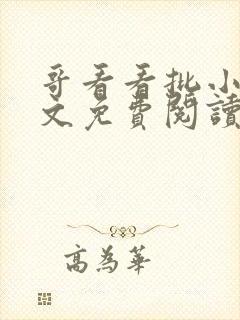 哥看看批小
文免費閱讀
高為華